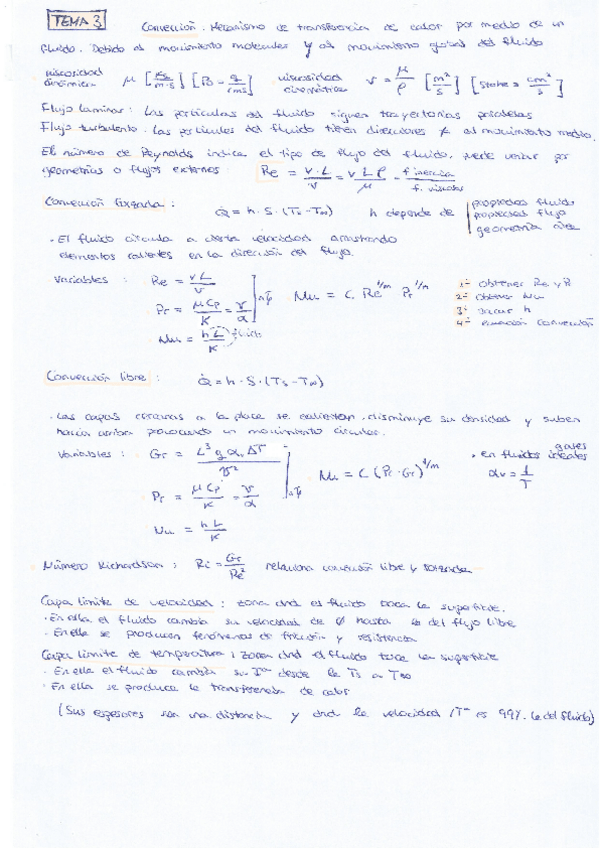 TEMA 3
Convección. Mecanismo de transferencia de calor por medio de un
fluido. Debido al movimiento molecular y al movimiento global del fluido
viscosidad dinámica μ [kg/m·s] [Po = g/cm s] viscosidad cinemática ν = μ/ρ [m²/s] [Stoke = cm²/s]
Flujo laminar: Las partículas del fluido siguen trayectorias paralelas
Flujo turbulento. Las partículas del fluido tienen direcciones ≠ al movimiento medio.
El número de Reynolds indica el tipo de flujo del fluido, puede variar por
geometrías o flujos externos: Re = v·L/ν = v L ρ/μ = f inercia/f. viscosas
Convección forzada: Q̇ = h·S·(Ts-T∞) h depende de propiedades fluido
propiedades flujo
geometría
· El fluido circula a cierta velocidad arrastrando
elementos calientes en la dirección del flujo.
Variables: Re = vL/ν
Pr = μCp/K = ν/α Nu = C. Re^1/m Pr^1/n
Nu = hL/K
1º obtener Re y Pr
2º obtener Nu
3º sacar h
4º ecuación convección
Convección libre: Q̇ = h·S·(Ts-T∞)
· Las capas cercanas a la placa se calientan. disminuye su densidad y suben
hacia arriba provocando un movimiento circular.
Variables: Gr = L³ g αv ΔT/ν²
Pr = μCp/K = ν/α
Nu = hL/K
Nu = C (Pr·Gr)^1/m
· en fluidos ideales
gases
αv = 1/T
Número Richardson: Ri = Gr/Re² relaciona convección libre y forzada
Capa límite de velocidad: zona dnd el fluido toca la superficie.
· En ella el fluido cambia su velocidad de 0 hasta la del flujo libre
· En ella se producen fenómenos de fricción y resistencia
Capa límite de temperatura: zona dnd el fluido toca la superficie
· En ella el fluido cambia su Tª desde la Ts a T∞
· En ella se produce la transferencia de calor
(Sus espesores son una distancia y dnd la velocidad /Tª es 99% la del fluido)